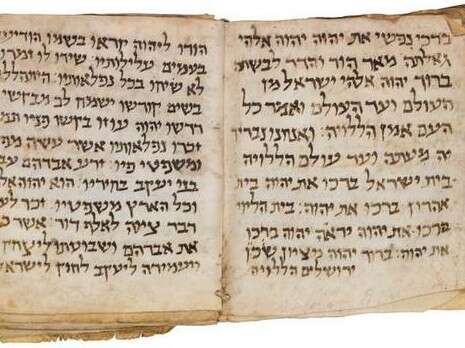 ברכי נפשי את יהוה יהוה אלהי
גדלתה מאד הוד והדר לבשתה
ברוך יהוה אלהי ישראל מן
העולם ועד העולם ואמר כל
העם אמן הללויה: ואנחנו נברך
יה מעתה ועד עולם הללויה
בית ישראל ברכו את יהוה בית
אהרון ברכו את יהוה: בית הלוי
ברכו את יהוה יראה יהוה ברכו
את יהוה: ברוך יהוה מציון שכן
ירושלים הללויה
הודו ליהוה קראו בשמו הודיעו
בעמים עלילותיו: שירו לו זמרו
לו שיחו בכל נפלאותיו: התהללו
בשם קודשו ישמח לב מבקשי
דרשו יהוה עוזו בקשו פניו
זכרו נפלאותיו אשר עשה
ומשפטי פיו: זרע אברהם
בני יעקב בחיריו: הוא יהוה
וכל הארץ משפטיו: זכר
דבר ציוה לאלף דור: אשר
את אברהם ושבועתו ליצחק
ויעמידה ליעקב לחוק לישראל